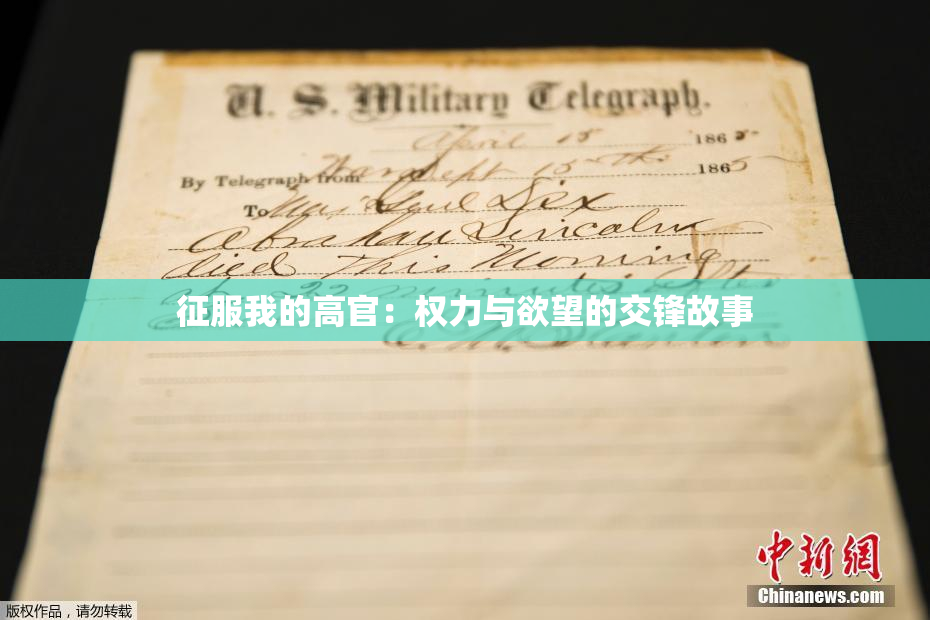 U. S. Military Telegraph.
April 15 1865
By Telegraph from War Dept 15th 1865
To Maj Genl Dix
Abraham Lincoln
died This Morning
22 minutes after
征服我的高官：权力与欲望的交锋故事
E. M. Stanton
中新网
Chinanews.com
版权作品，请勿转载